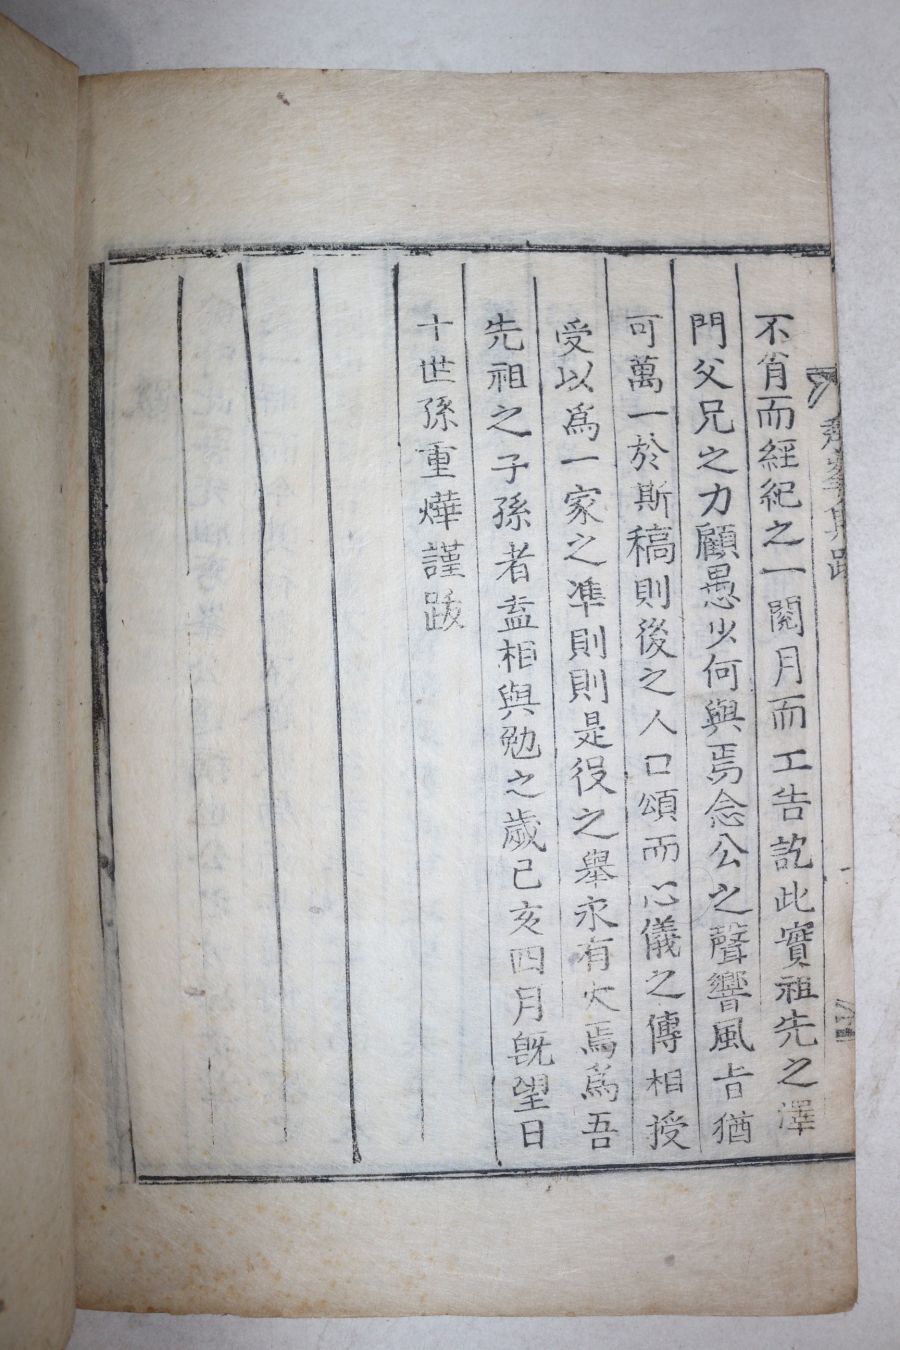 不肖而經紀之一閱月而工告訖此實祖先之澤
門父兄之力顧愚少何與焉念公之聲響風旨猶
可萬一於斯稿則後之人口頌而心儀之傳相授
受以爲一家之準則則是役之舉永有大焉爲吾
先祖之子孫者盍相與勉之歲己亥四月旣望日
十世孫重燁謹跋